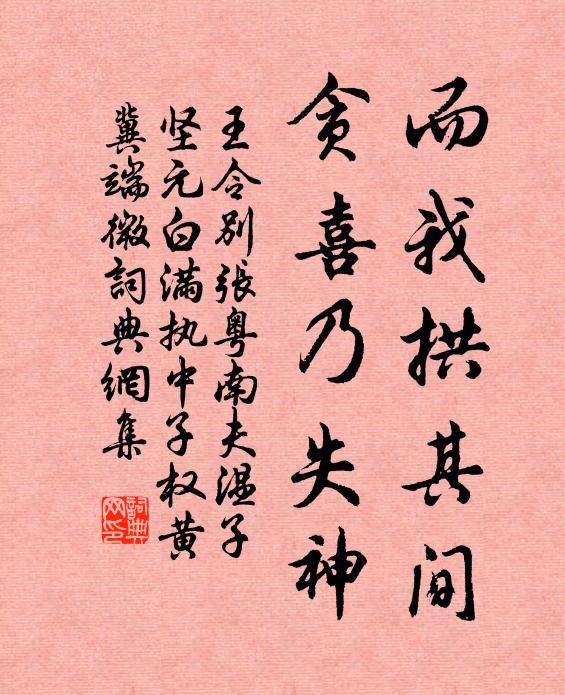 而我拱其间
贪喜乃失神
王令别張粤南夫温子
坚元白满执中子权黄
冀端微詞典網集
詞典
网印